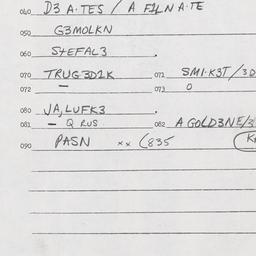 040 D3 A·TES / A F1LN A·TE
050 G3MOLKN
060 S+EFAL3 .
070 TRUG3D1K 071 SM1·K3T/3D
072 — 073 0
080 JA,LUFK3 .
081 — Q RUS 082 A GOLD3NE/3
090 PASN xx (835